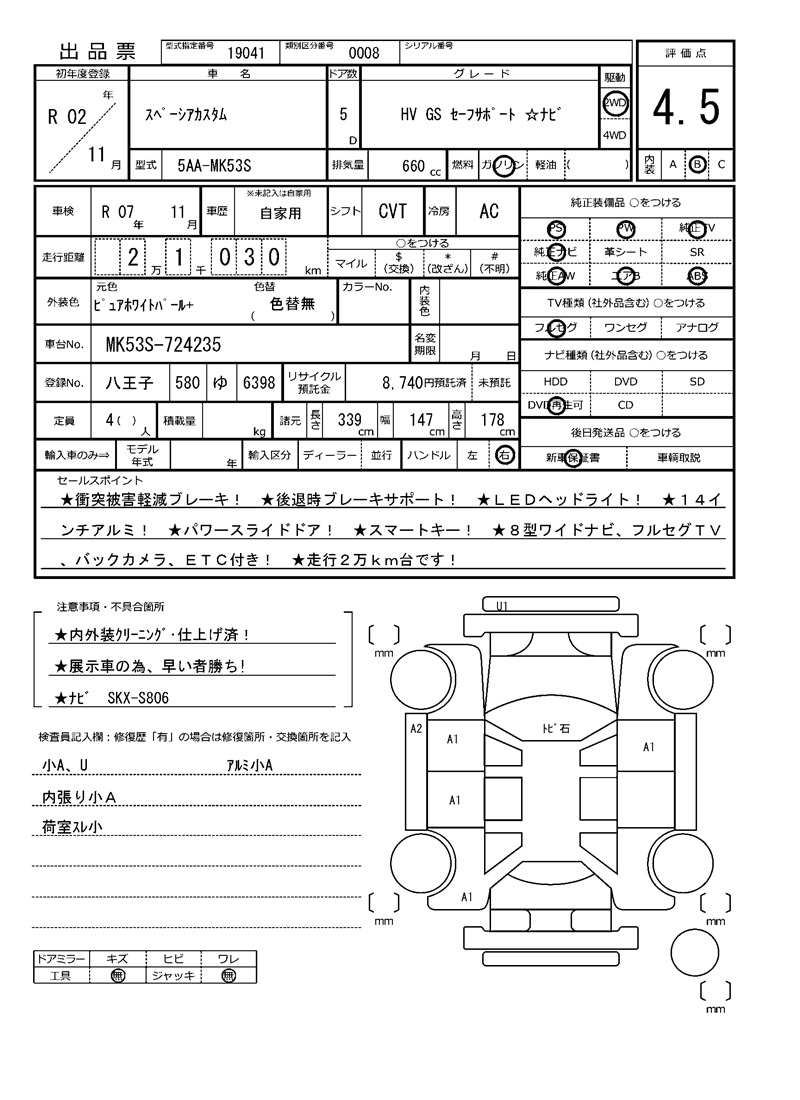 出品票 型式指定番号 19041 類別区分番号 0008 シリアル番号
評価点
4.5
内装 A B C
初年度登録 車名 ドア数 グレード 駆動
R 02 年 11 月
スペーシアカスタム 5 D HV GS セーフサポート ☆ナビ 2WD
4WD
型式 5AA-MK53S 排気量 660 cc 燃料 ガソリン 軽油 ( )
車検 R 07 年 11 月 車歴 ※未記入は自家用 自家用 シフト CVT 冷房 AC
走行距離 2 万 1 千 0 3 0 km
○をつける
マイル $ (交換) * (改ざん) # (不明)
外装色 元色 ピュアホワイトパール+ 色替 ( 色替無 ) カラーNo. 内装色
車台No. MK53S-724235 名変期限 月 日
登録No. 八王子 580 ゆ 6398 リサイクル預託金 8,740円預託済 未預託
定員 4( ) 人 積載量 kg 諸元 長さ 339 cm 幅 147 cm 高さ 178 cm
輸入車のみ⇒ モデル年式 年 輸入区分 ディーラー 並行 ハンドル 左 右
純正装備品 ○をつける
PS PW 純正TV
純正ナビ 革シート SR
純正AW エアB ABS
TV種類(社外品含む)○をつける
フルセグ ワンセグ アナログ
ナビ種類(社外品含む)○をつける
HDD DVD SD
DVD再生可 CD
後日発送品 ○をつける
新車保証書 車輌取説
セールスポイント
★衝突被害軽減ブレーキ! ★後退時ブレーキサポート! ★LEDヘッドライト! ★14イ
ンチアルミ! ★パワースライドドア! ★スマートキー! ★8型ワイドナビ、フルセグTV
、バックカメラ、ETC付き! ★走行2万km台です!
注意事項・不具合箇所
★内外装クリーニング・仕上げ済!
★展示車の為、早い者勝ち!
★ナビ SKX-S806
検査員記入欄:修復歴「有」の場合は修復箇所・交換箇所を記入
小A、U アルミ小A
内張り小A
荷室スレ小
ドアミラー キズ ヒビ ワレ
工具 無 ジャッキ 無
U1
mm mm
トビ石
A2 A1 A1
A1
A1
mm mm
mm